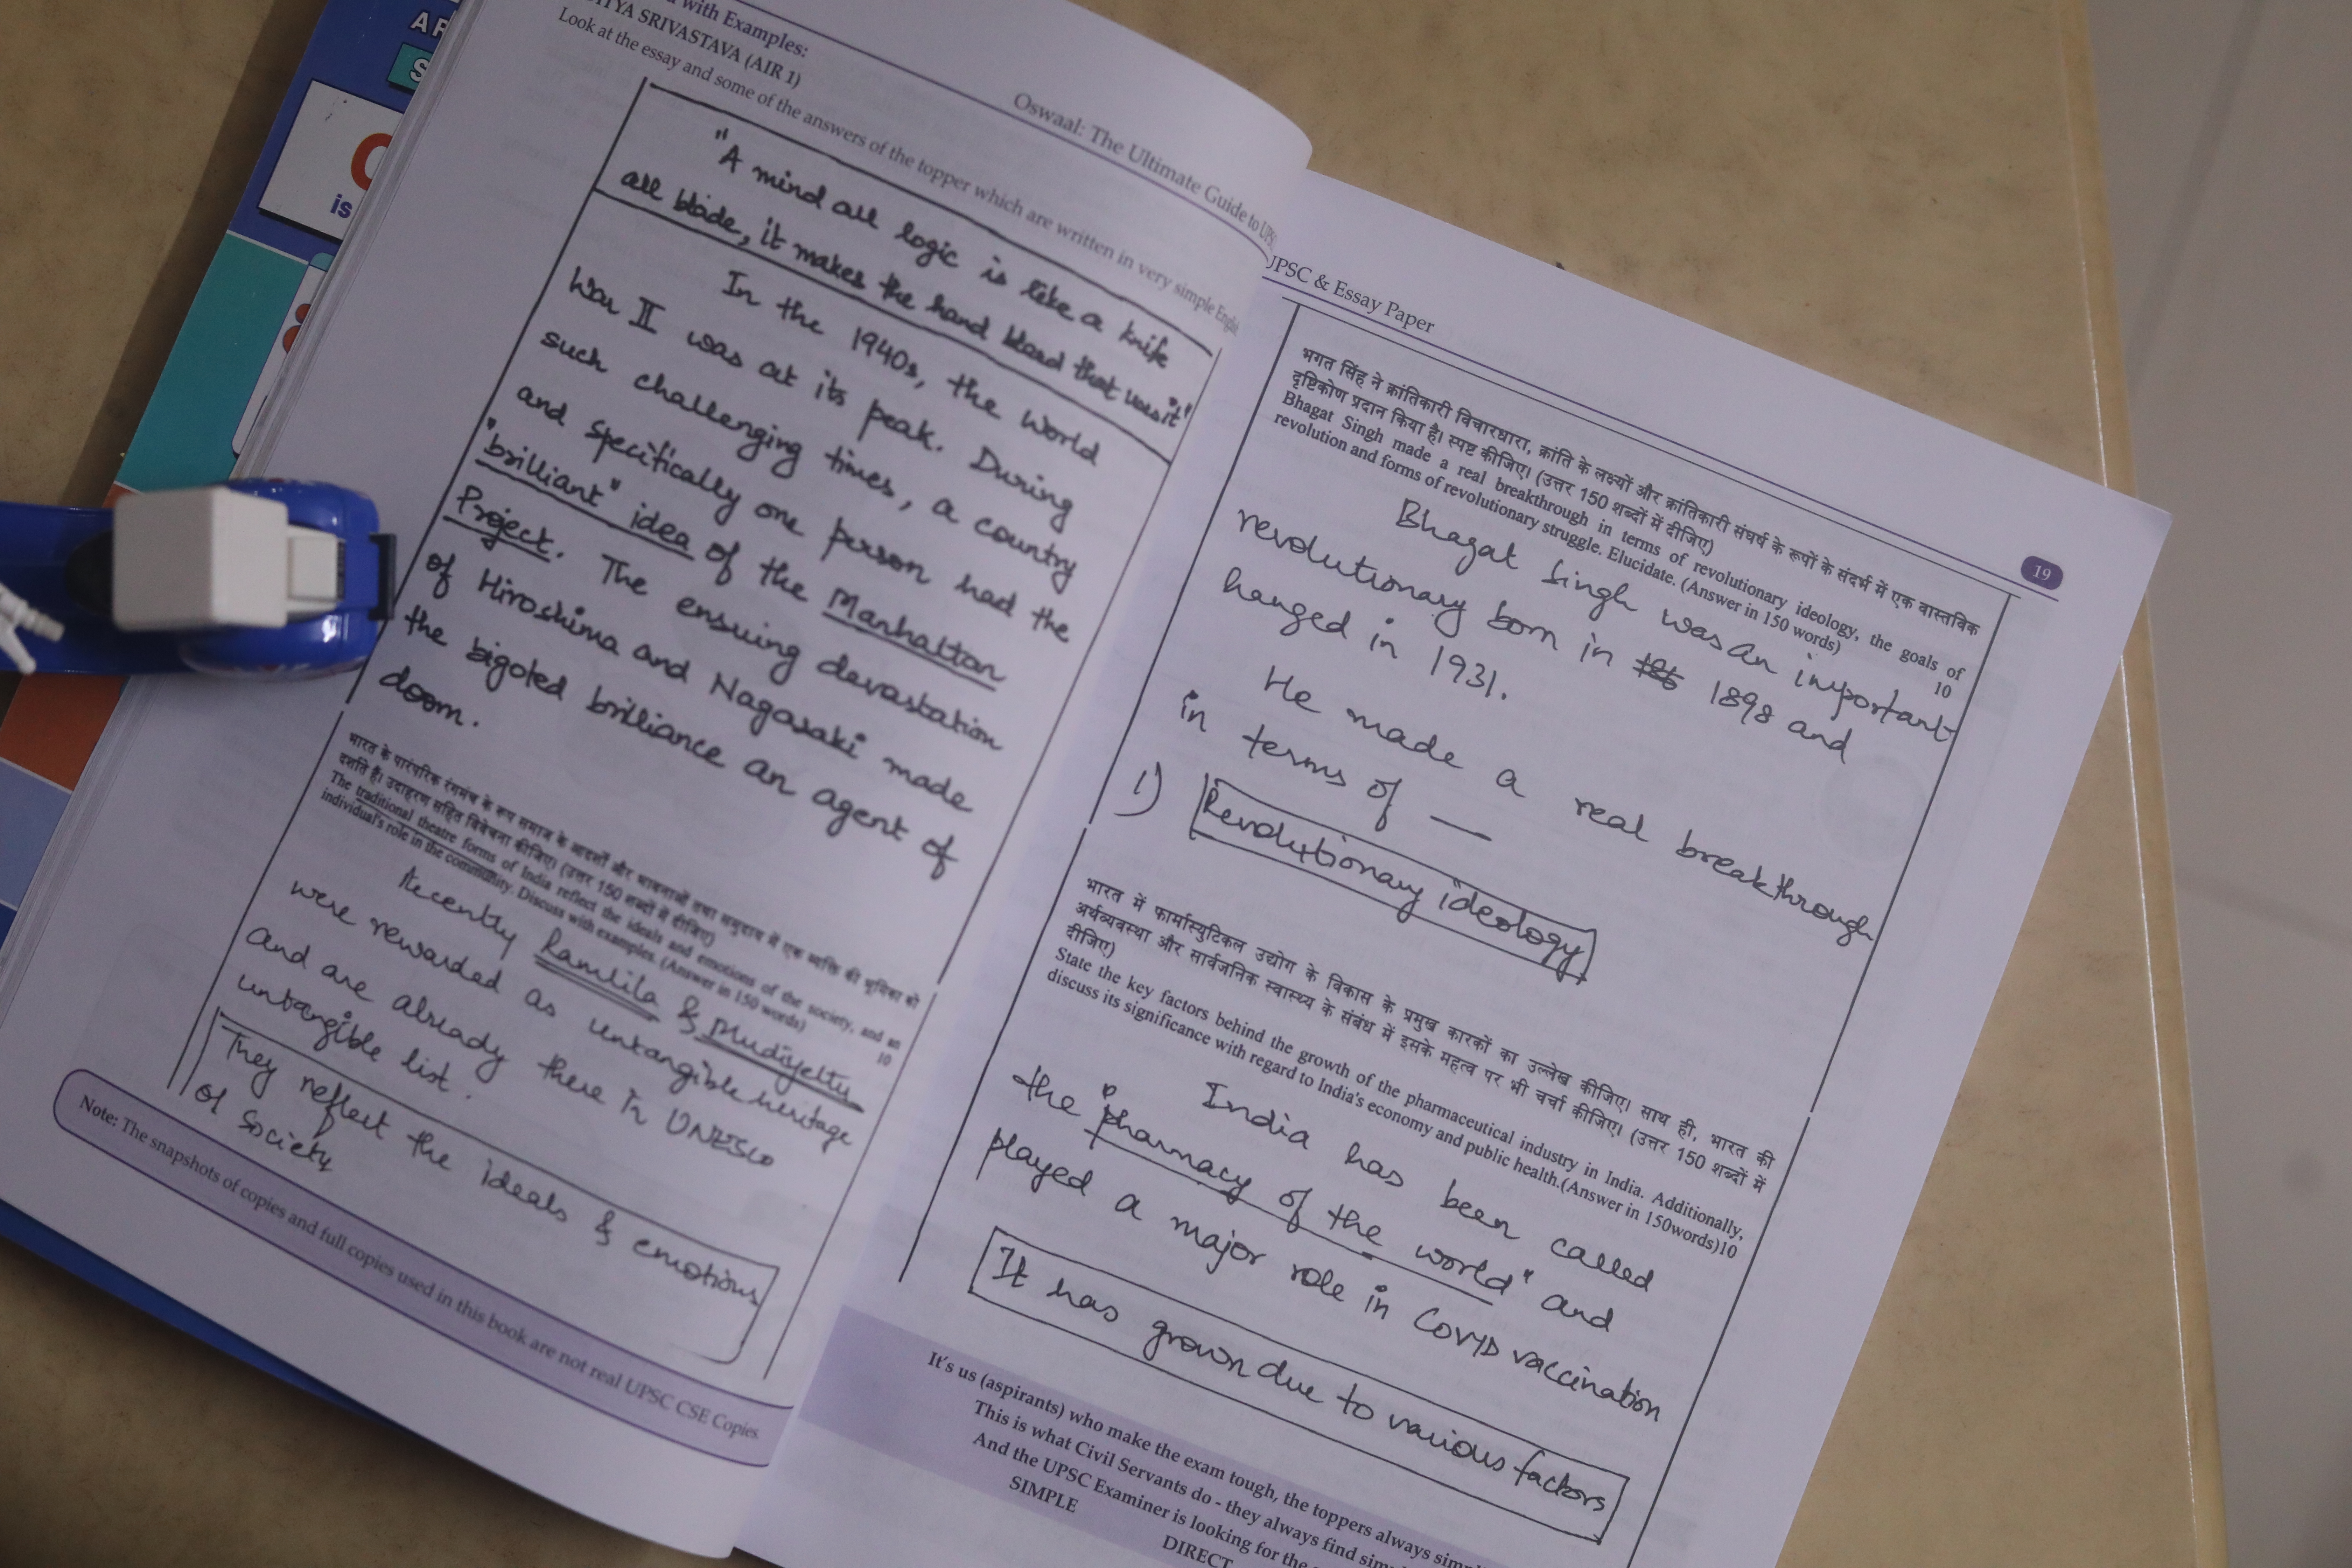 AR
S
is
with Examples:
ITYA SRIVASTAVA (AIR 1)
Look at the essay and some of the answers of the topper which are written in very simple
Oswaal: The Ultimate Guide to UPSC
"A mind all logic is like a knife
all blade, it makes the hand bleed that uses it"
In the 1940s, the World
War II was at its peak. During
such challenging times, a country
and specifically one person had the
"brilliant" idea of the Manhattan
Project. The ensuing devastation
of Hiroshima and Nagasaki made
the bigoted brilliance an agent of
doom.
भारत के पारंपरिक रंगमंच के रूप समाज के आदर्शों और भावनाओं तथा समुदाय में एक व्यक्ति की भूमिका को
दर्शाते है। उदाहरण सहित विवेचना कीजिए। (उत्तर 150 शब्दों में दीजिए)
The traditional theatre forms of India reflect the ideals and emotions of the society, and an
individual's role in the community. Discuss with examples. (Answer in 150 words) 10
Recently Ramlila & Mudiyettu
were rewarded as untangible heritage
and are already there in UNESCO
untangible list.
They reflect the ideals & emotions
of Society
Note: The snapshots of copies and full copies used in this book are not real UPSC CSE Copies.
UPSC & Essay Paper
19
भगत सिंह ने क्रांतिकारी विचारधारा, क्रांति के लक्ष्यों और क्रांतिकारी संघर्ष के रूपों के संदर्भ में एक वास्तविक
दृष्टिकोण प्रदान किया है। स्पष्ट कीजिए। (उत्तर 150 शब्दों में दीजिए)
Bhagat Singh made a real breakthrough in terms of revolutionary ideology, the goals of
revolution and forms of revolutionary struggle. Elucidate. (Answer in 150 words) 10
Bhagat Singh was an important
revolutionary born in 1898 and
hanged in 1931.
He made a real breakthrough
in terms of —
1) Revolutionary ideology
भारत में फार्मास्युटिकल उद्योग के विकास के प्रमुख कारकों का उल्लेख कीजिए। साथ ही, भारत की
अर्थव्यवस्था और सार्वजनिक स्वास्थ्य के संबंध में इसके महत्व पर भी चर्चा कीजिए। (उत्तर 150 शब्दों में
दीजिए)
State the key factors behind the growth of the pharmaceutical industry in India. Additionally,
discuss its significance with regard to India's economy and public health.(Answer in 150words)10
India has been called
the "pharmacy of the world" and
played a major role in COVID vaccination
It has grown due to various factors
It's us (aspirants) who make the exam tough, the toppers always
This is what Civil Servants do - they always find
And the UPSC Examiner is looking for the
SIMPLE
DIRECT